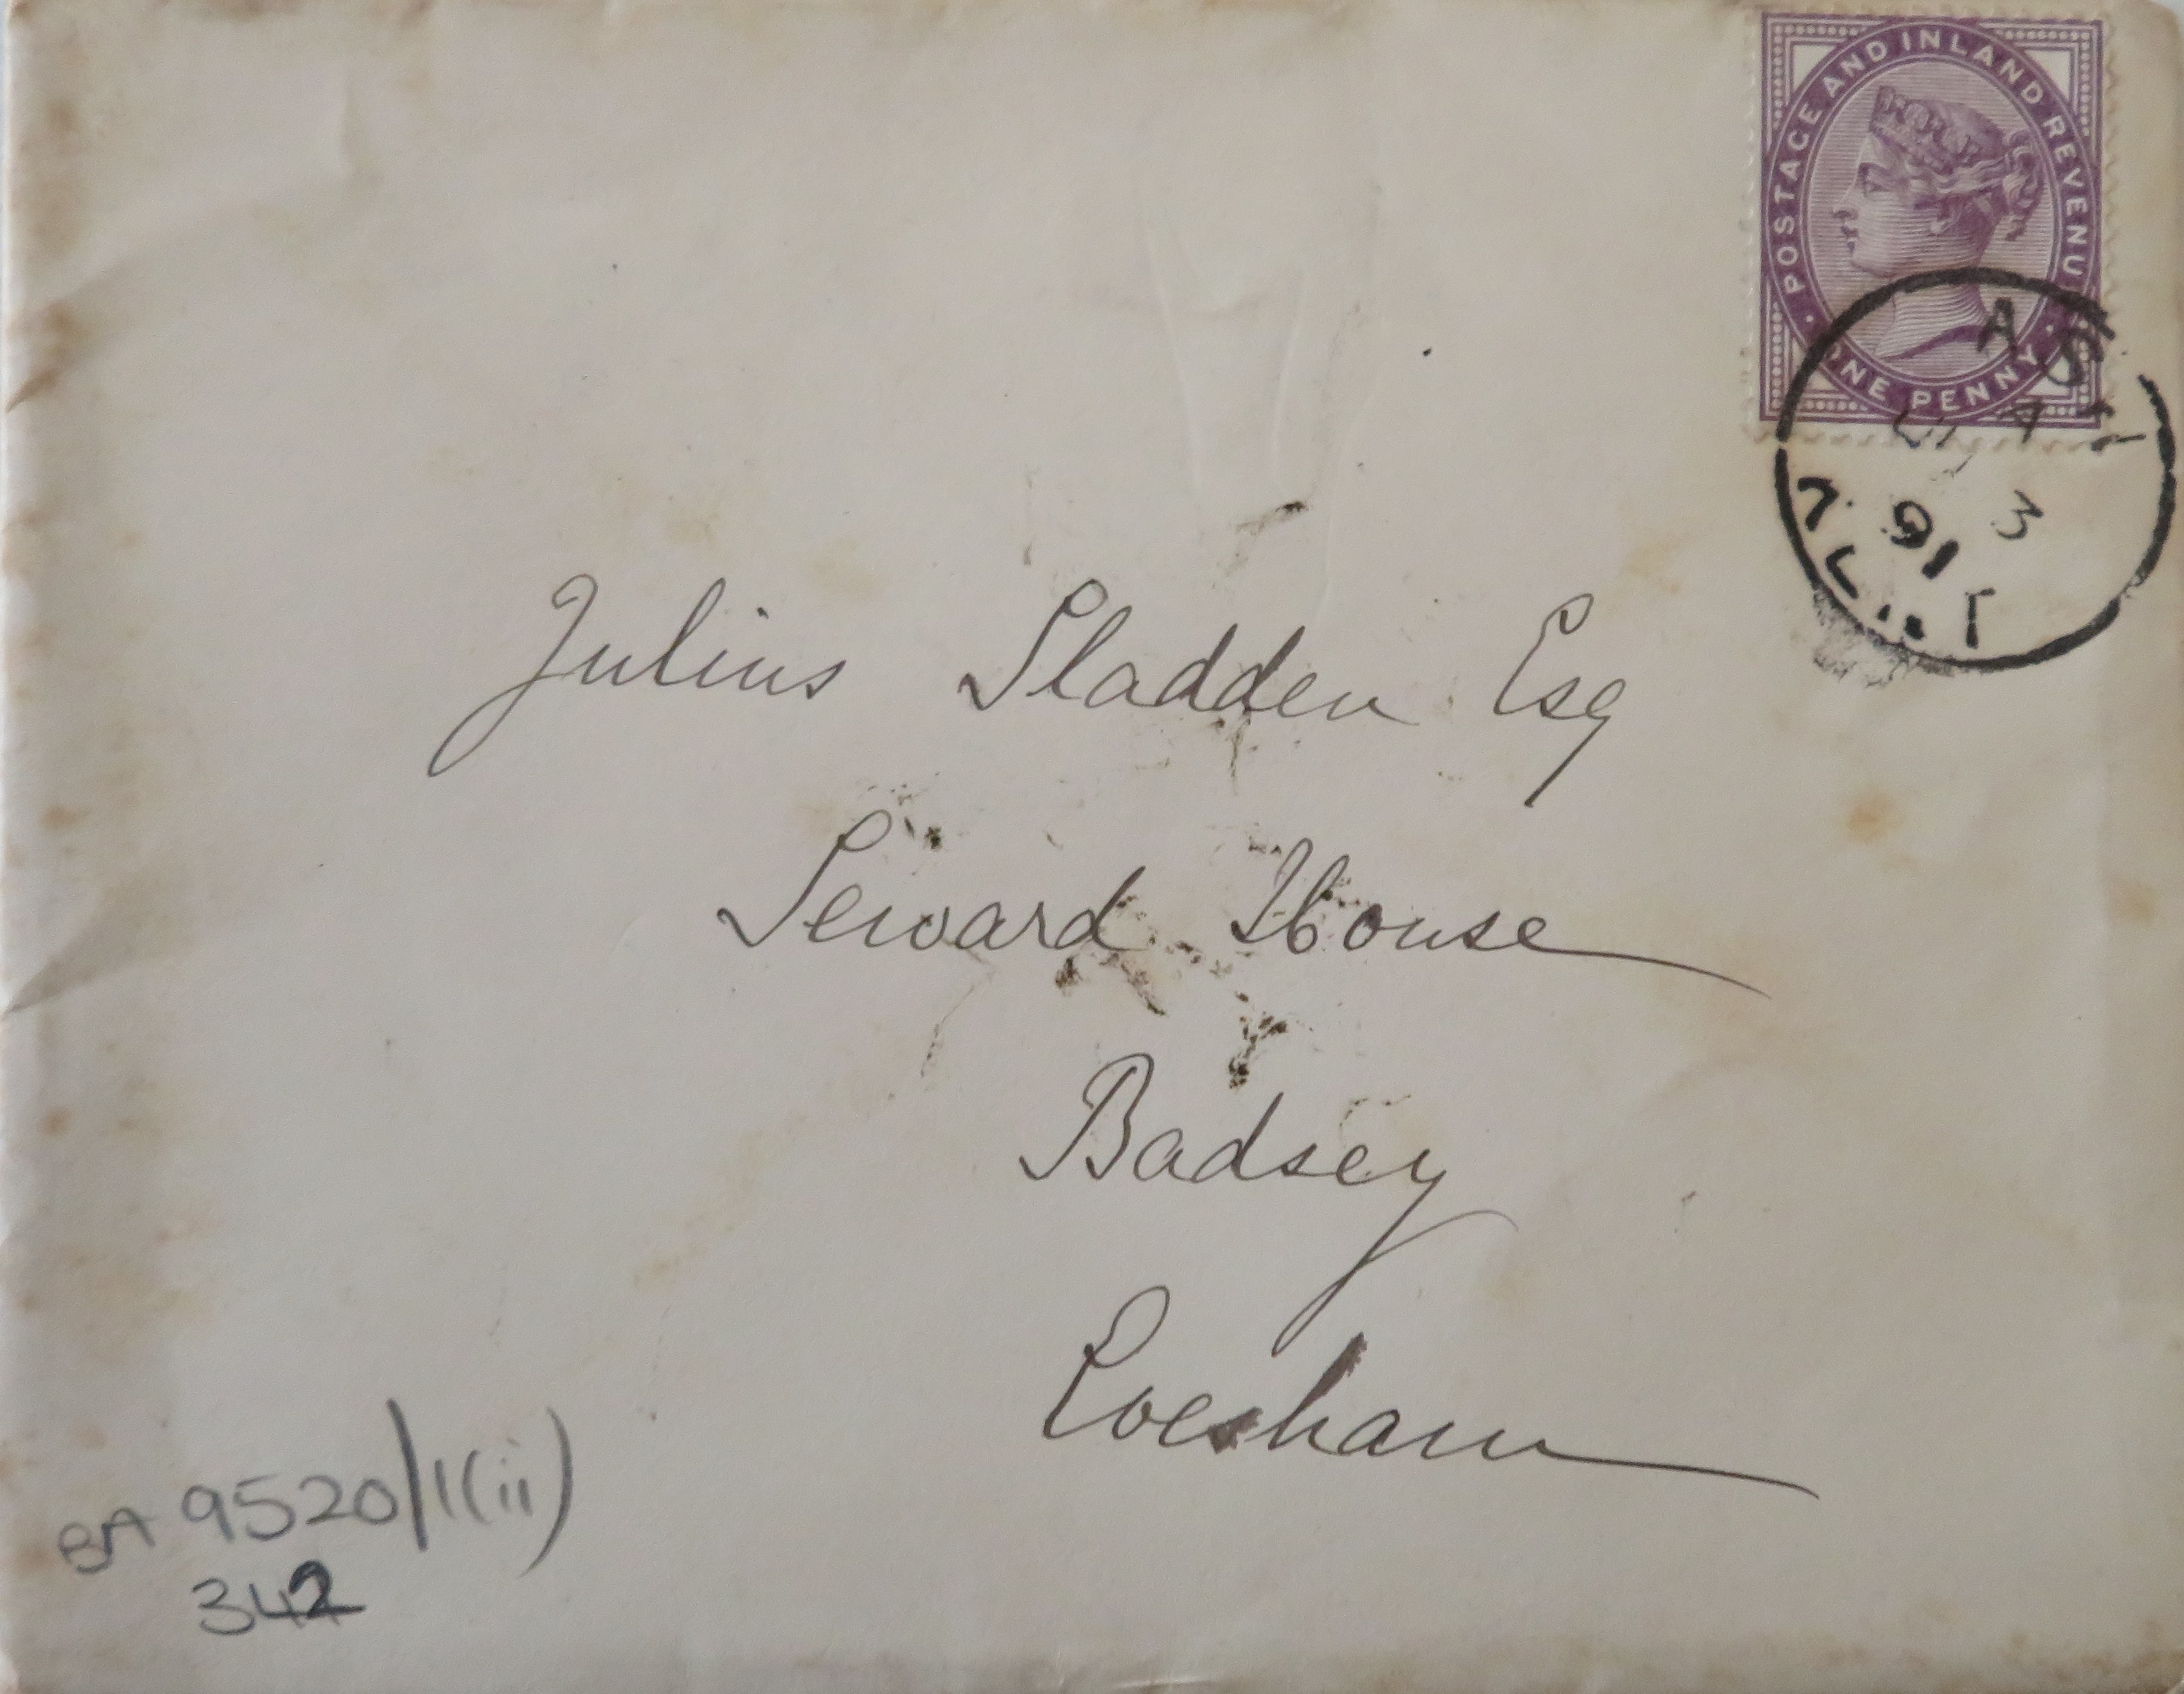 POSTAGE AND INLAND REVENUE
ONE PENNY
A
3
91
Julius Sladden Esq
Seward House
Badsey
Evesham
BA 9520/1(ii)
342